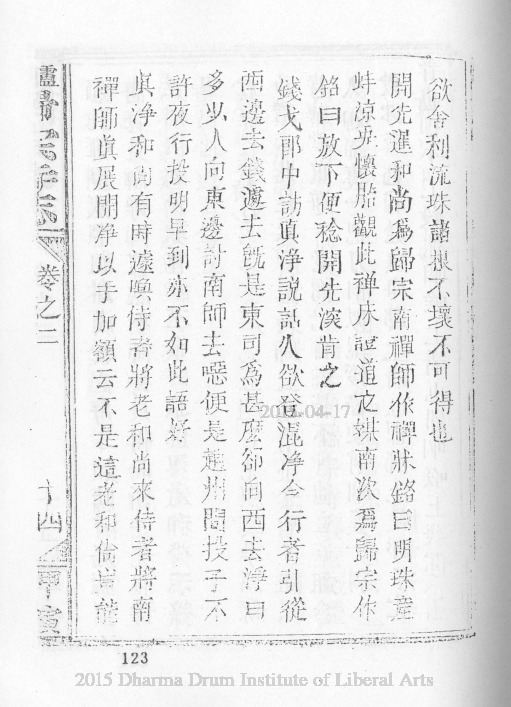 欲舍利流珠諸根不壞不可得也
開先暹和尚為歸宗南禪師作禪牀銘曰明珠產
蚌涼兔懷胎觀此禪床証道之媒南次為歸宗作
銘曰放下便穩開先深肯之
錢弋郎中訪真淨說話久欲登溷淨令行者引從
西邊去錢遽云既是東司為甚麼卻向西去淨曰
多少人向東邊討南師云噁便是趙州問投子不
許夜行投明早到亦不如此語好
真淨和尚有時遽喚侍者將老和尚來侍者將南
禪師真展開淨以手加額云不是這老和尚豈能
卷之二
十四
甲寅
2015-04-17
123
2015 Dharma Drum Institute of Liberal Arts